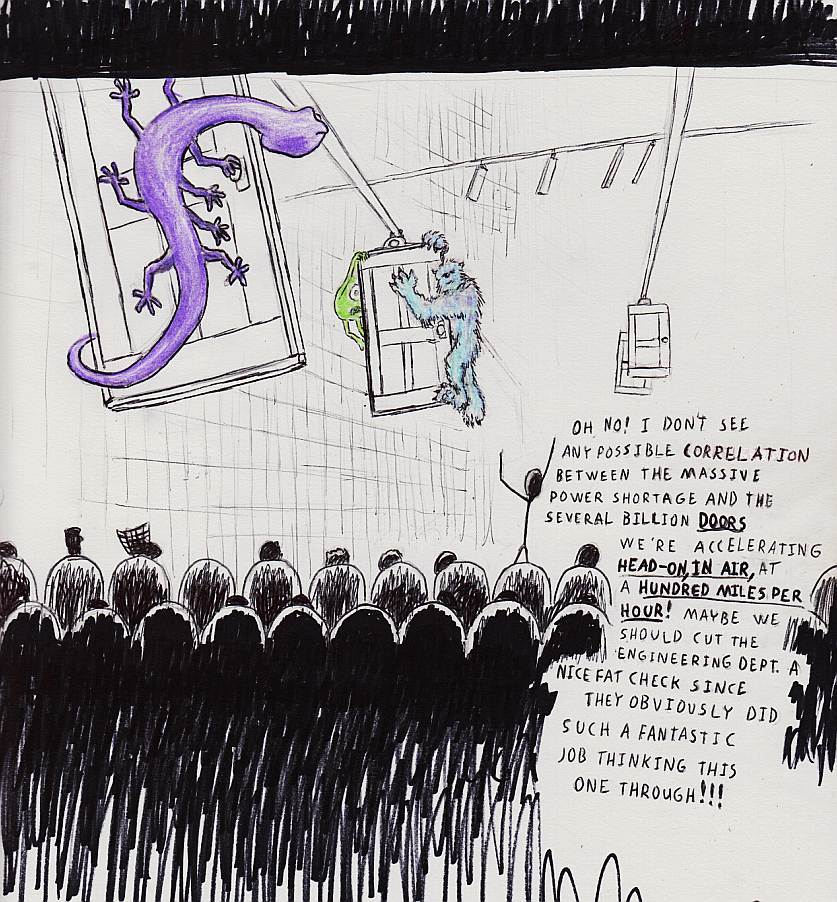 OH NO! I DON'T SEE
ANY POSSIBLE CORRELATION
BETWEEN THE MASSIVE
POWER SHORTAGE AND THE
SEVERAL BILLION DOORS
WE'RE ACCELERATING
HEAD-ON, IN AIR, AT
A HUNDRED MILES PER
HOUR! MAYBE WE
SHOULD CUT THE
ENGINEERING DEPT. A
NICE FAT CHECK SINCE
THEY OBVIOUSLY DID
SUCH A FANTASTIC
JOB THINKING THIS
ONE THROUGH!!!